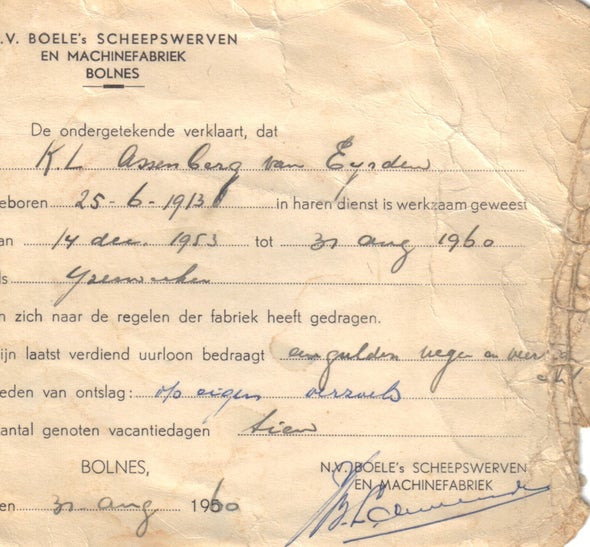 N.V. BOELE's SCHEEPSWERVEN
EN MACHINEFABRIEK
BOLNES
De ondergetekende verklaart, dat
K.L. Assenberg van Eysden
eboren 25-6-1913 in haren dienst is werkzaam geweest
an 14 dec. 1953 tot 31 aug 1960
ls Yzerwerker
n zich naar de regelen der fabriek heeft gedragen.
ijn laatst verdiend uurloon bedraagt een gulden negen en veertig
eden van ontslag: o/o eigen verzoek
antal genoten vacantiedagen tien
BOLNES, N.V. BOELE's SCHEEPSWERVEN
EN MACHINEFABRIEK
en 31 aug 1960